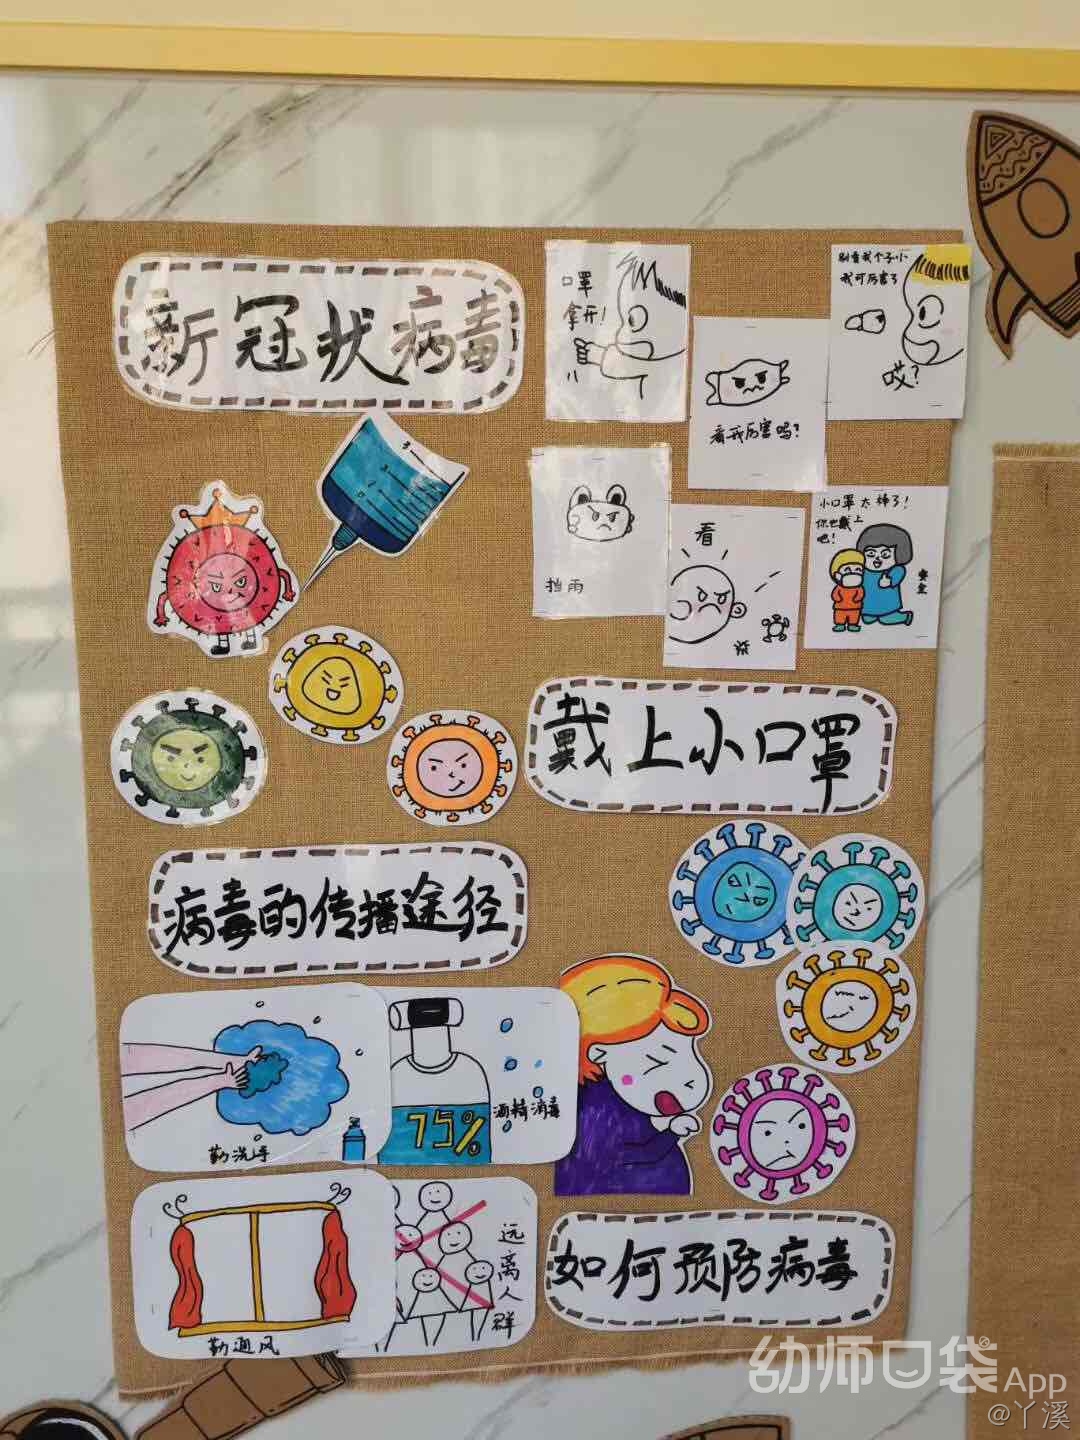 新冠状病毒
口罩
拿开!
看我厉害吗?
别看我个子小
我可厉害了
哎?
挡雨
看
小口罩太棒了!
你也戴上
吧!
安全
戴上小口罩
病毒的传播途径
勤洗手
75%
酒精消毒
勤通风
远离人群
如何预防病毒
幼师口袋App
@丫溪